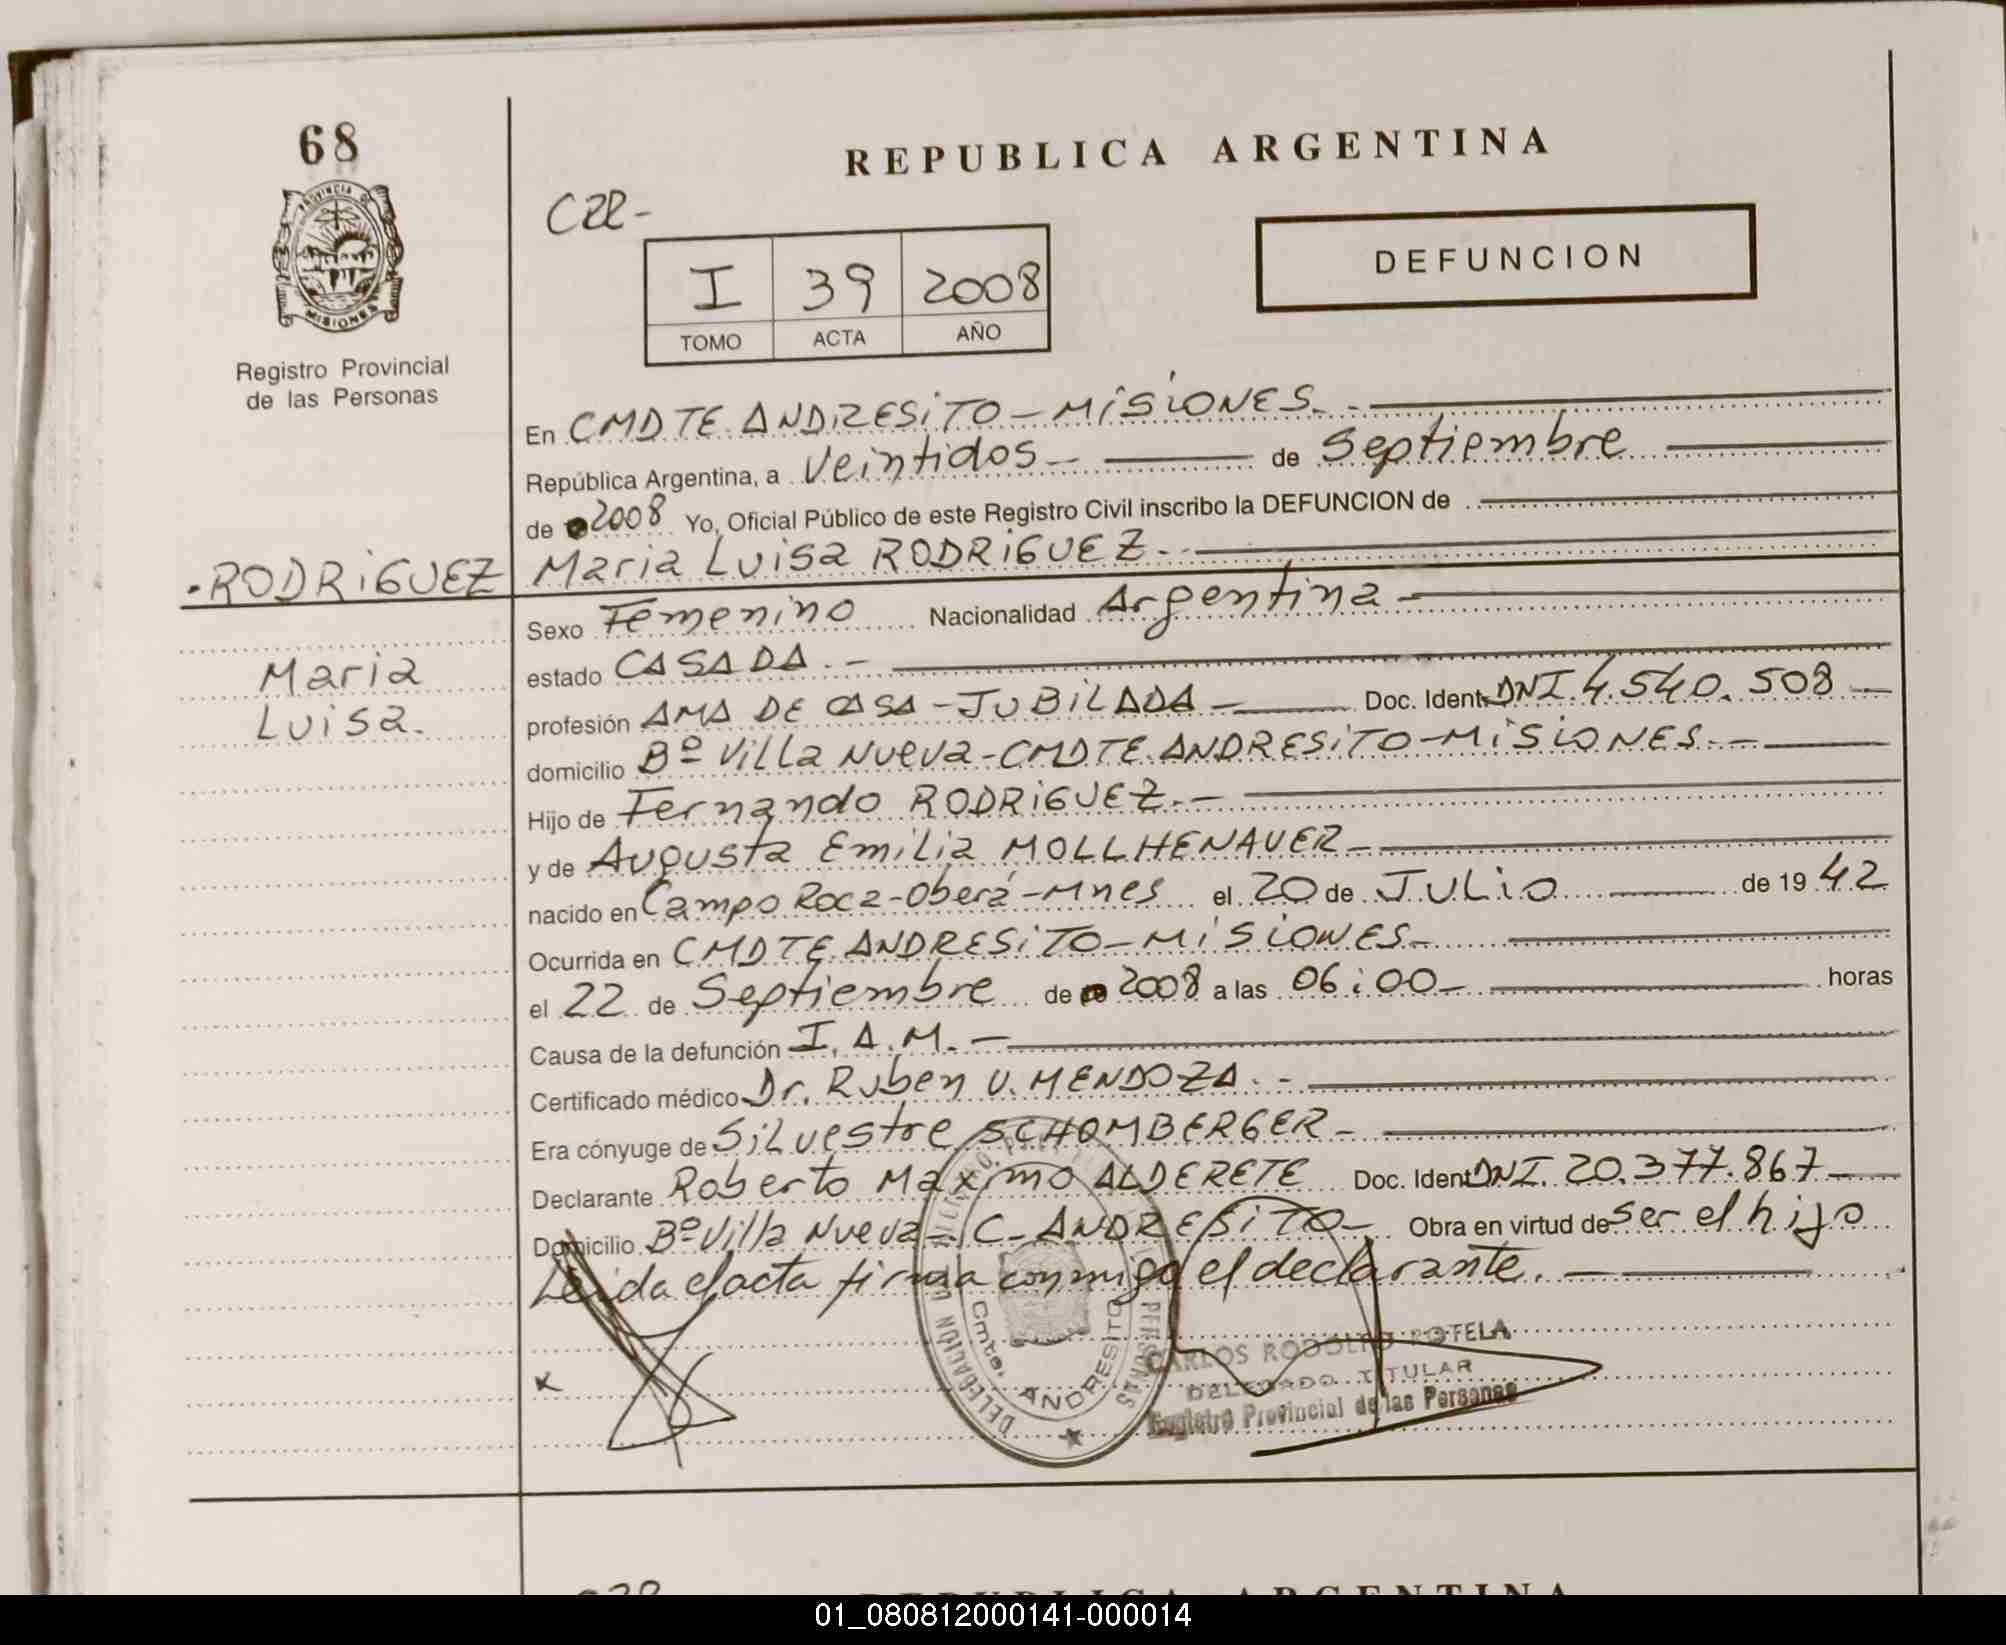 68
PROVINCIA DE
MISIONES
Registro Provincial
de las Personas
REPUBLICA ARGENTINA
C22-
DEFUNCION
I 39 2008
TOMO ACTA AÑO
En CMDTE ANDRESITO - MISIONES.-
República Argentina, a Veintidos - de Septiembre
de 2008 Yo, Oficial Público de este Registro Civil inscribo la DEFUNCION de
.RODRIGUEZ Maria Luisa RODRIGUEZ.-
Maria
Luisa.
Sexo Femenino Nacionalidad Argentina -
estado CASADA.-
profesión AMA DE CASA - JUBILADA - Doc. Ident. DNI 4.540.508 -
domicilio Bº Villa Nueva - CMDTE ANDRESITO - MISIONES.-
Hijo de Fernando RODRIGUEZ.-
y de Augusta Emilia MOLLHENAUER -
nacido en Campo Roca - Oberá - Mnes el 20 de JULIO de 19 42
Ocurrida en CMDTE ANDRESITO - MISIONES -
el 22 de Septiembre de 2008 a las 06:00 - horas
Causa de la defunción I.A.M. -
Certificado médico Dr. Ruben U. MENDOZA.-
Era cónyuge de Silvestre SCHOMBERGER -
Declarante Roberto Maximo ALDERETE Doc. Ident. DNI. 20.377.867 -
Domicilio Bº Villa Nueva - C. ANDRESITO - Obra en virtud de ser el hijo
Leida el acta firma conmigo el declarante. -
DELEGACION
Cmte. ANDRESITO
PERSONAS
CARLOS RODOLFO ROTELA
DELEGADO TITULAR
Registro Provincial de las Personas
x
REPUBLICA ARGENTINA
01_080812000141-000014